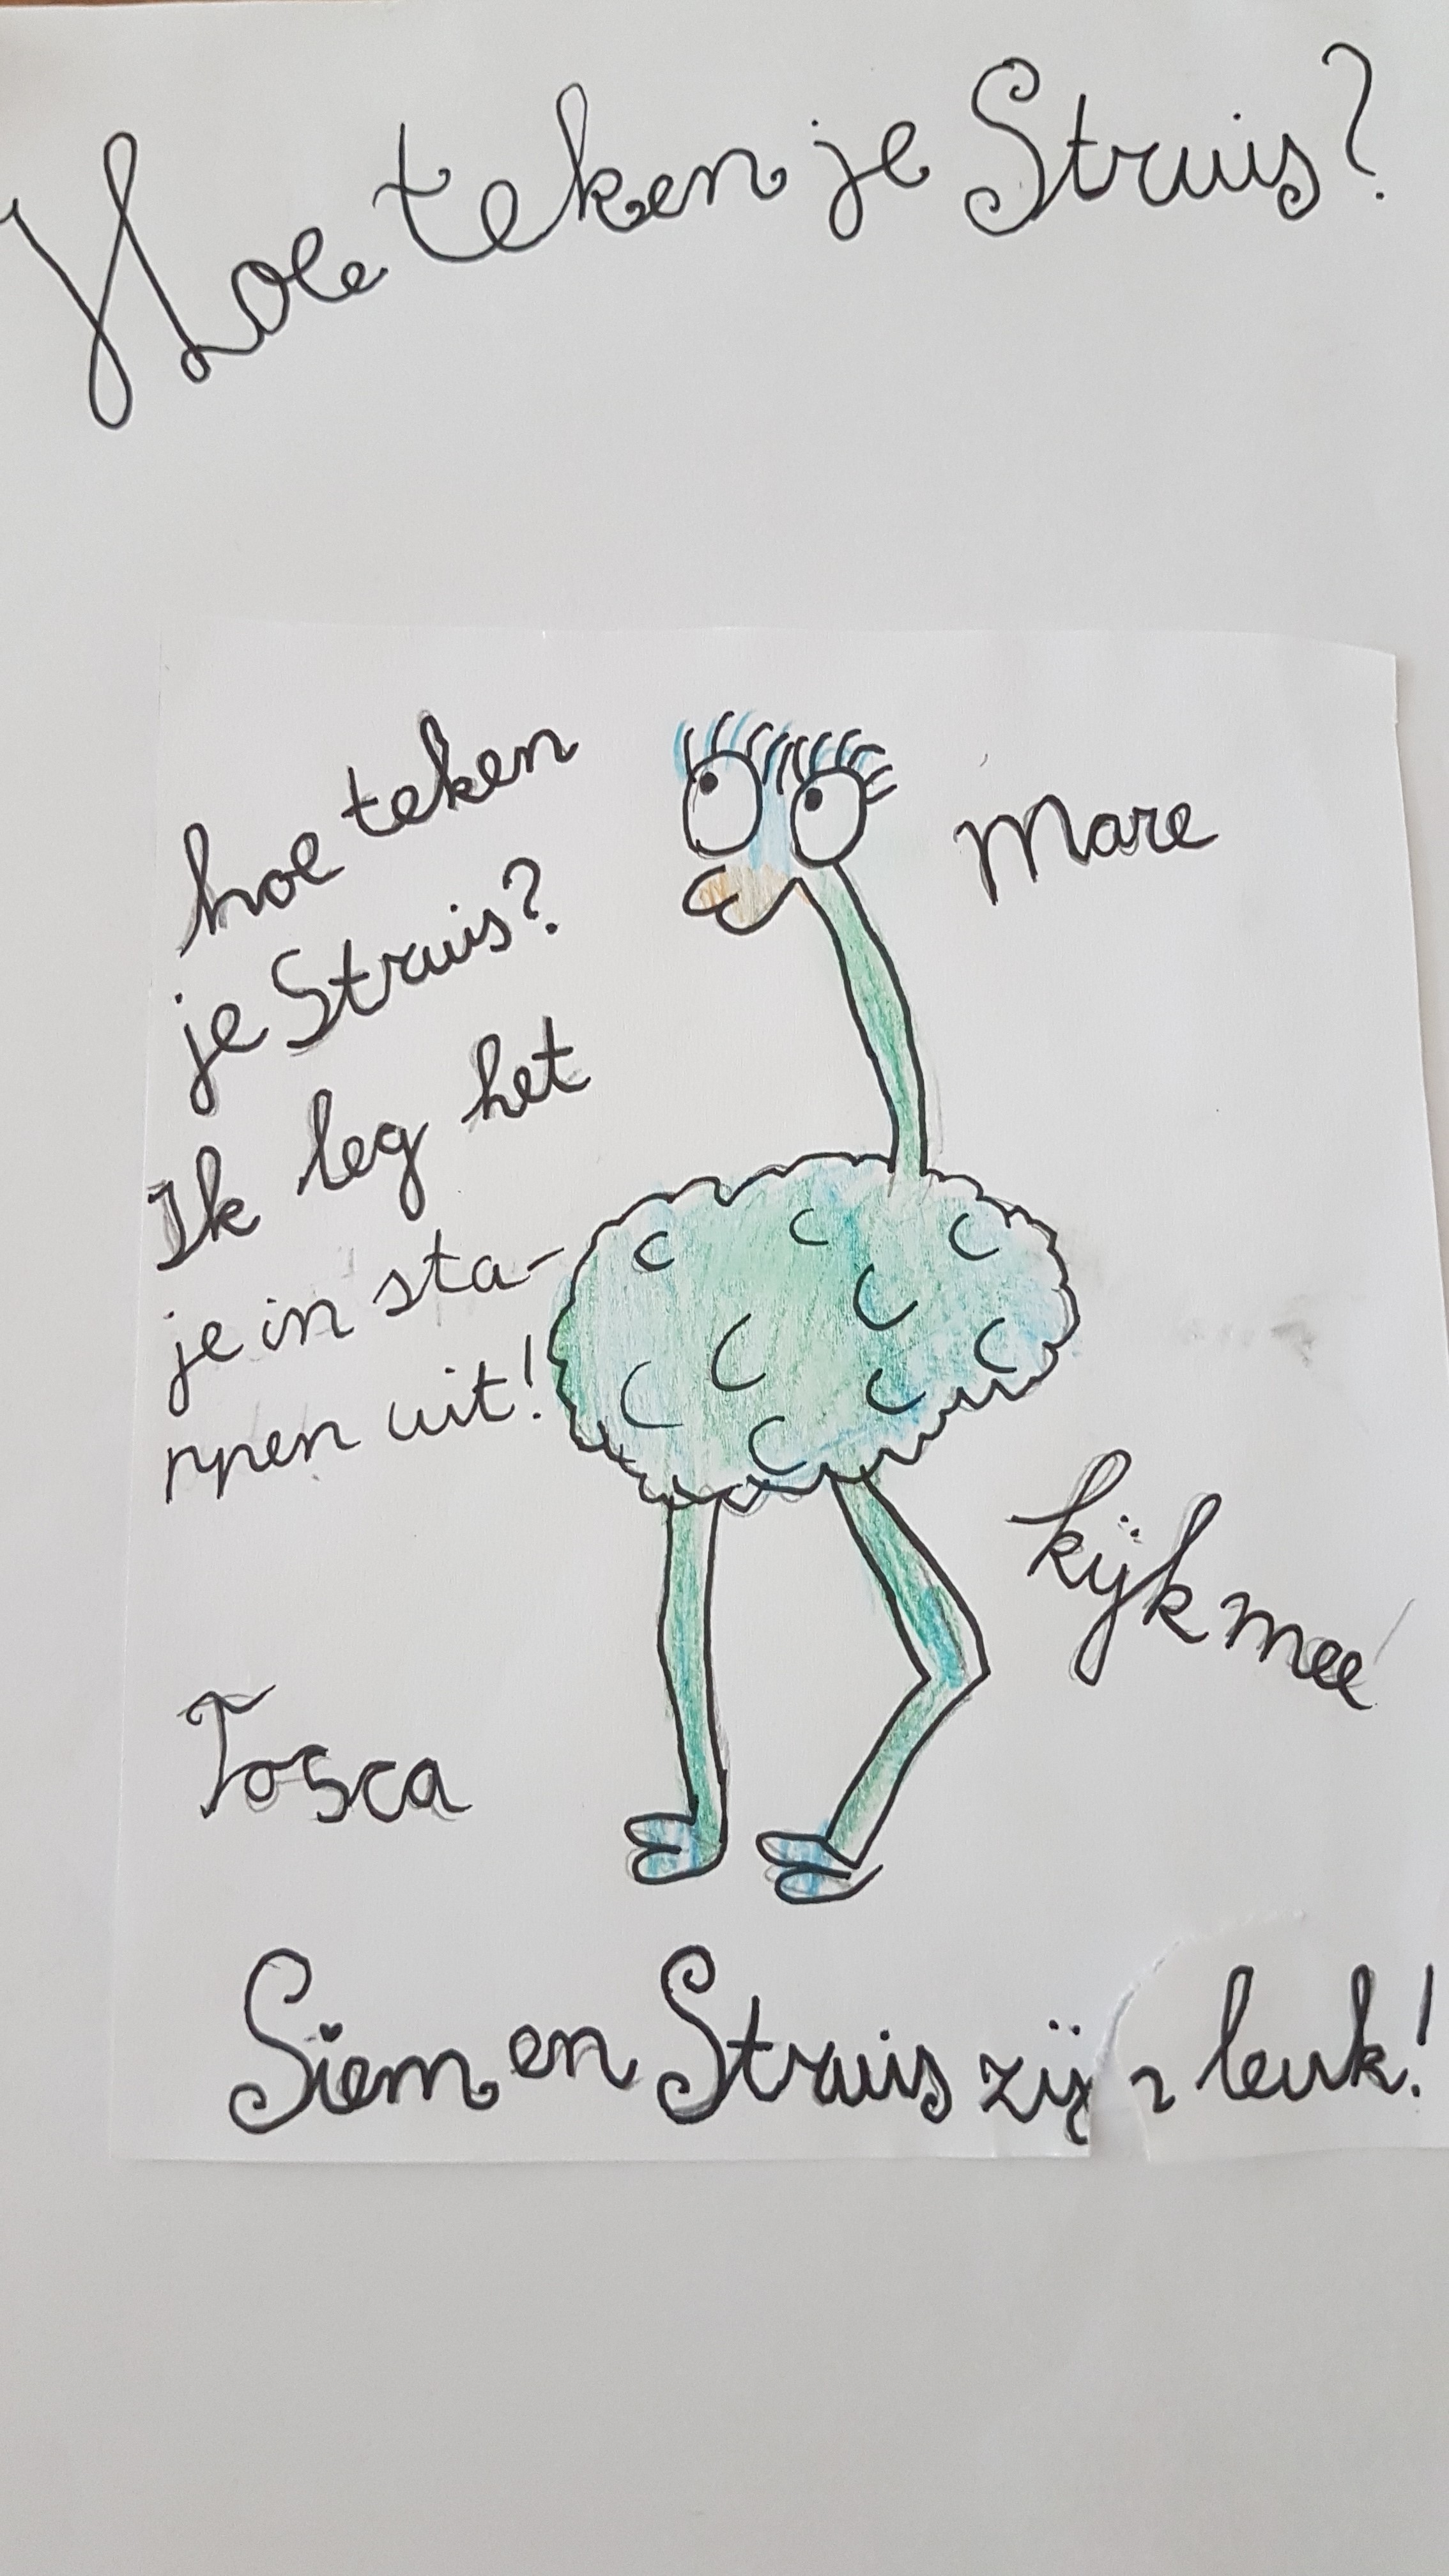 Hoe teken je Struis?
hoe teken
je Struis?
Ik leg het
je in sta-
ppen uit!
Mare
kijk mee
Tosca
Siem en Struis zijn leuk!